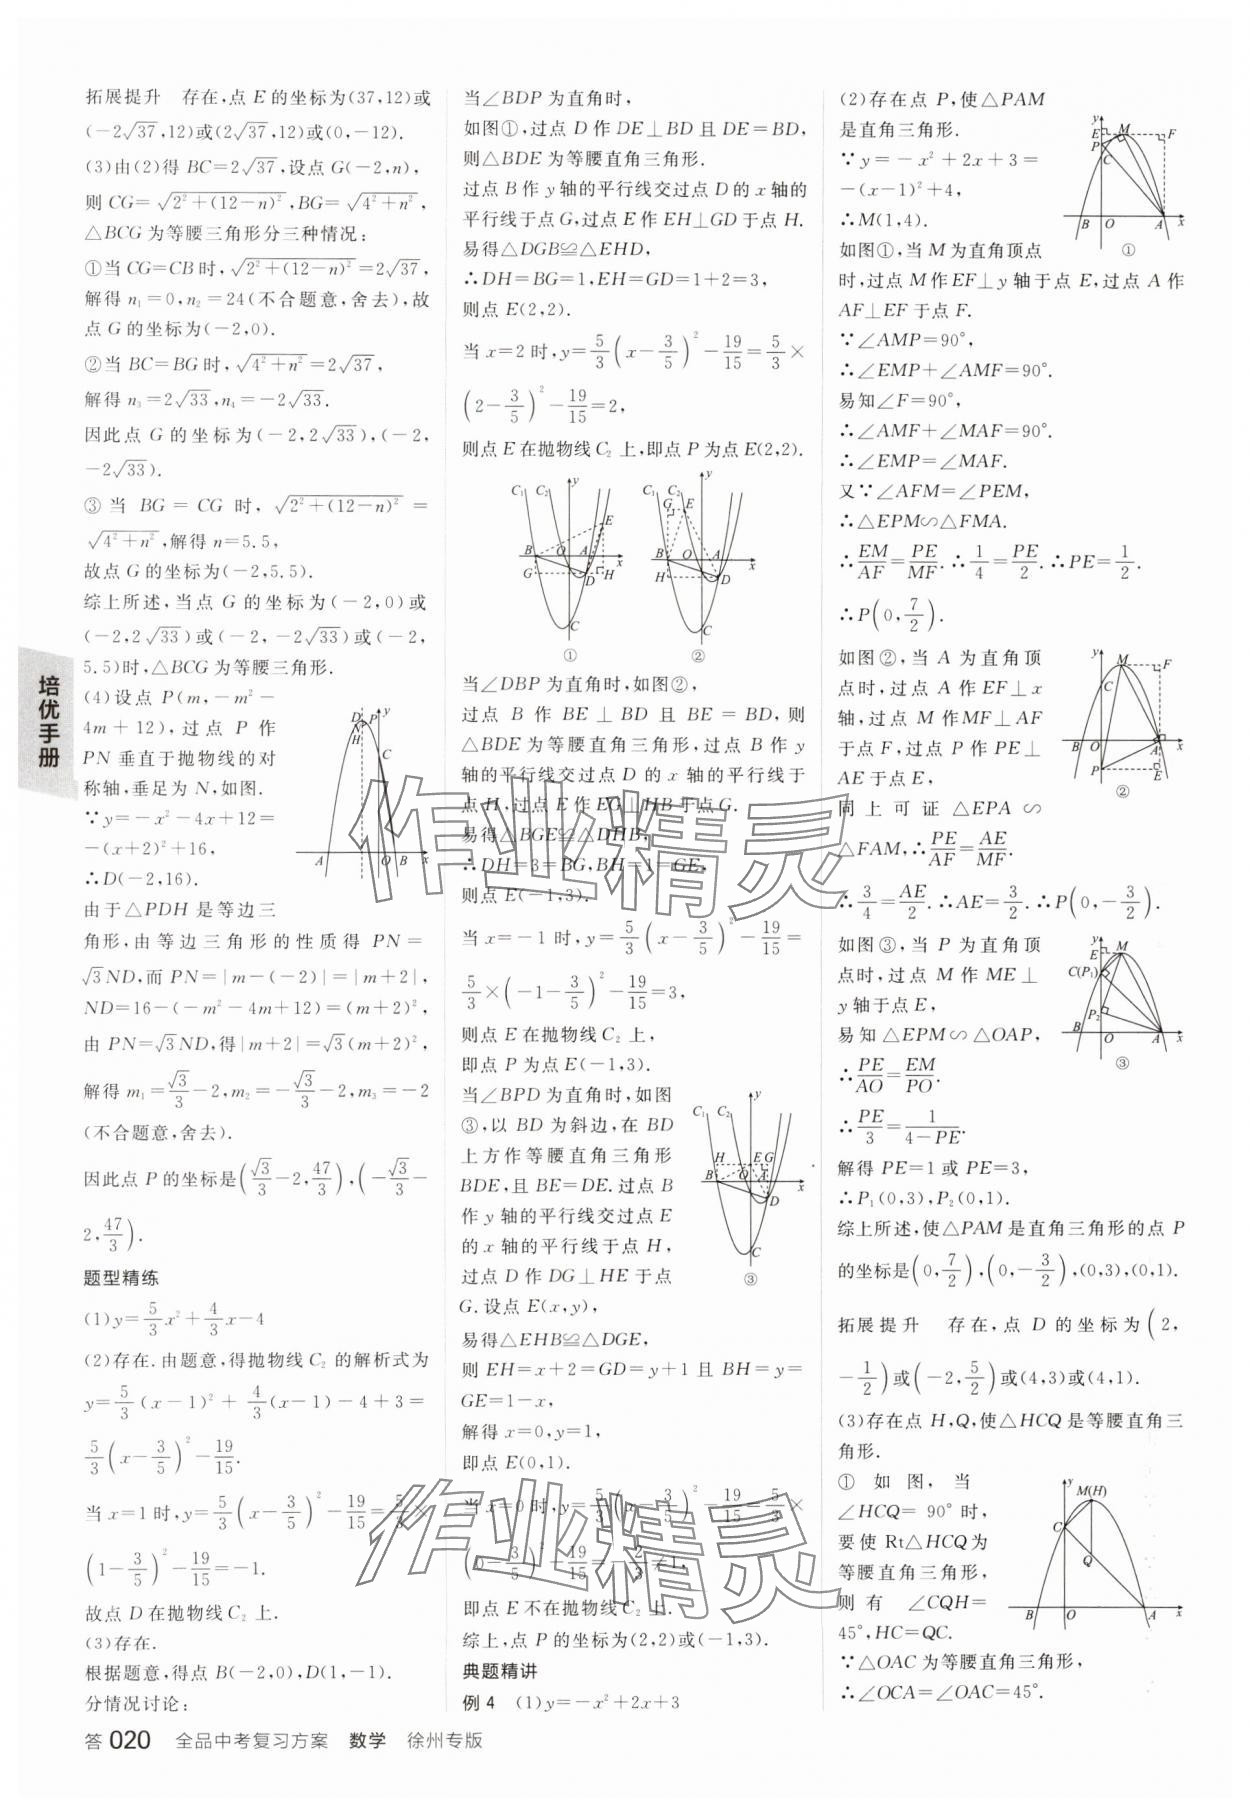 拓展提升　存在,点 E 的坐标为(37,12)或
(-2√37,12)或(2√37,12)或(0,-12).
(3)由(2)得 BC=2√37,设点 G(-2,n),
则 CG=√(2²+(12-n)²),BG=√(4²+n²),
△BCG 为等腰三角形分三种情况:
①当 CG=CB 时,√(2²+(12-n)²)=2√37,
解得 n₁=0,n₂=24(不合题意,舍去),故
点 G 的坐标为(-2,0).
②当 BC=BG 时,√(4²+n²)=2√37,
解得 n₃=2√33,n₄=-2√33.
因此点 G 的坐标为(-2,2√33),(-2,
-2√33).
③当 BG=CG 时,√(2²+(12-n)²)=
√(4²+n²),解得 n=5.5,
故点 G 的坐标为(-2,5.5).
综上所述,当点 G 的坐标为(-2,0)或
(-2,2√33)或(-2,-2√33)或(-2,
5.5)时,△BCG 为等腰三角形.
(4)设点 P(m,-m²-
4m+12),过点 P 作
PN 垂直于抛物线的对
称轴,垂足为 N,如图.
∵y=-x²-4x+12=
-(x+2)²+16,
∴D(-2,16).
由于△PDH 是等边三
角形,由等边三角形的性质得 PN=
√3ND,而 PN=|m-(-2)|=|m+2|,
ND=16-(-m²-4m+12)=(m+2)²,
由 PN=√3ND,得|m+2|=√3(m+2)²,
解得 m₁=√3/3-2,m₂=-√3/3-2,m₃=-2
(不合题意,舍去).
因此点 P 的坐标是(√3/3-2,47/3),(-√3/3-
2,47/3).
题型精练
(1)y=5/3x²+4/3x-4
(2)存在.由题意,得抛物线 C₂ 的解析式为
y=5/3(x-1)²+4/3(x-1)-4+3=
5/3(x-3/5)²-19/15.
当 x=1 时,y=5/3(x-3/5)²-19/15=5/3×
(1-3/5)²-19/15=-1.
故点 D 在抛物线 C₂ 上.
(3)存在.
根据题意,得点 B(-2,0),D(1,-1).
分情况讨论:
当∠BDP 为直角时,
如图①,过点 D 作 DE⊥BD 且 DE=BD,
则△BDE 为等腰直角三角形.
过点 B 作 y 轴的平行线交过点 D 的 x 轴的
平行线于点 G,过点 E 作 EH⊥GD 于点 H.
易得△DGB≌△EHD,
∴DH=BG=1,EH=GD=1+2=3,
则点 E(2,2).
当 x=2 时,y=5/3(x-3/5)²-19/15=5/3×
(2-3/5)²-19/15=2,
则点 E 在抛物线 C₂ 上,即点 P 为点 E(2,2).
①
②
当∠DBP 为直角时,如图②,
过点 B 作 BE⊥BD 且 BE=BD,则
△BDE 为等腰直角三角形,过点 B 作 y
轴的平行线交过点 D 的 x 轴的平行线于
点 H,过点 E 作 EG⊥HB 于点 G.
易得△BGE≌△DHB,
∴DH=3=BG,BH=1=GE,
则点 E(-1,3).
当 x=-1 时,y=5/3(x-3/5)²-19/15=
5/3×(-1-3/5)²-19/15=3,
则点 E 在抛物线 C₂ 上,
即点 P 为点 E(-1,3).
当∠BPD 为直角时,如图
③,以 BD 为斜边,在 BD
上方作等腰直角三角形
BDE,且 BE=DE.过点 B
作 y 轴的平行线交过点 E
的 x 轴的平行线于点 H,
过点 D 作 DG⊥HE 于点
G.设点 E(x,y),
③
易得△EHB≌△DGE,
则 EH=x+2=GD=y+1 且 BH=y=
GE=1-x,
解得 x=0,y=1,
即点 E(0,1).
当 x=0 时,y=5/3(x-3/5)²-19/15=5/3×
(0-3/5)²-19/15=-2/3≠1,
即点 E 不在抛物线 C₂ 上.
综上,点 P 的坐标为(2,2)或(-1,3).
典题精讲
例 4　(1)y=-x²+2x+3
(2)存在点 P,使△PAM
是直角三角形.
∵y=-x²+2x+3=
-(x-1)²+4,
∴M(1,4).
①
如图①,当 M 为直角顶点
时,过点 M 作EF⊥y 轴于点 E,过点 A 作
AF⊥EF 于点 F.
∵∠AMP=90°,
∴∠EMP+∠AMF=90°.
易知∠F=90°,
∴∠AMF+∠MAF=90°.
∴∠EMP=∠MAF.
又∵∠AFM=∠PEM,
∴△EPM∽△FMA.
∴EM/AF=PE/MF.∴1/4=PE/2.∴PE=1/2.
∴P(0,7/2).
如图②,当 A 为直角顶
点时,过点 A 作 EF⊥x
轴,过点 M 作MF⊥AF
于点 F,过点 P 作 PE⊥
AE 于点 E,
②
同上可证△EPA∽
△FAM,∴PE/AF=AE/MF.
∴3/4=AE/2.∴AE=3/2.∴P(0,-3/2).
如图③,当 P 为直角顶
点时,过点 M 作 ME⊥
y 轴于点 E,
易知△EPM∽△OAP,
③
∴PE/AO=EM/PO.
∴PE/3=1/(4-PE).
解得 PE=1 或 PE=3,
∴P₁(0,3),P₂(0,1).
综上所述,使△PAM 是直角三角形的点 P
的坐标是(0,7/2),(0,-3/2),(0,3),(0,1).
拓展提升　存在,点 D 的坐标为(2,
-1/2)或(-2,5/2)或(4,3)或(4,1).
(3)存在点 H,Q,使△HCQ 是等腰直角三
角形.
①如图,当
∠HCQ=90°时,
要使 Rt△HCQ 为
等腰直角三角形,
则有 ∠CQH=
45°,HC=QC.
∵△OAC 为等腰直角三角形,
∴∠OCA=∠OAC=45°.
培优手册
答 020 全品中考复习方案 数学 徐州专版
作业精灵
作业精灵